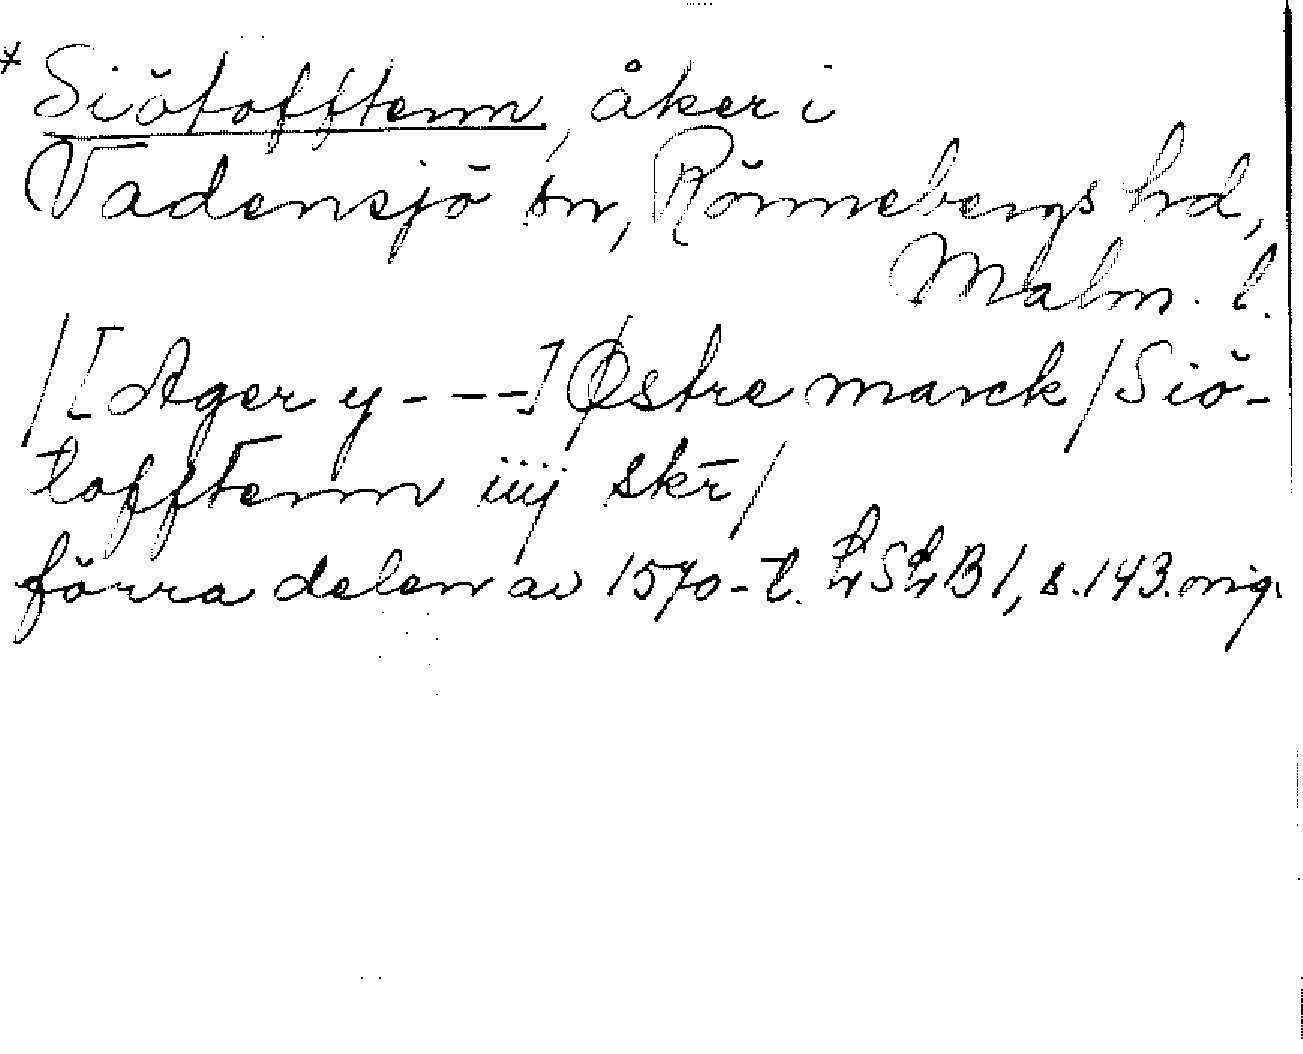 * Siötofftenn, åker i
Vadensjö sn, Rönnebergs hd,
Malm. l.
/[Ager y - - -] Østre marck/Siö-
tofftenn iiij skr̄/
förra delen av 1570-t. LSLB 1, s. 143. orig.